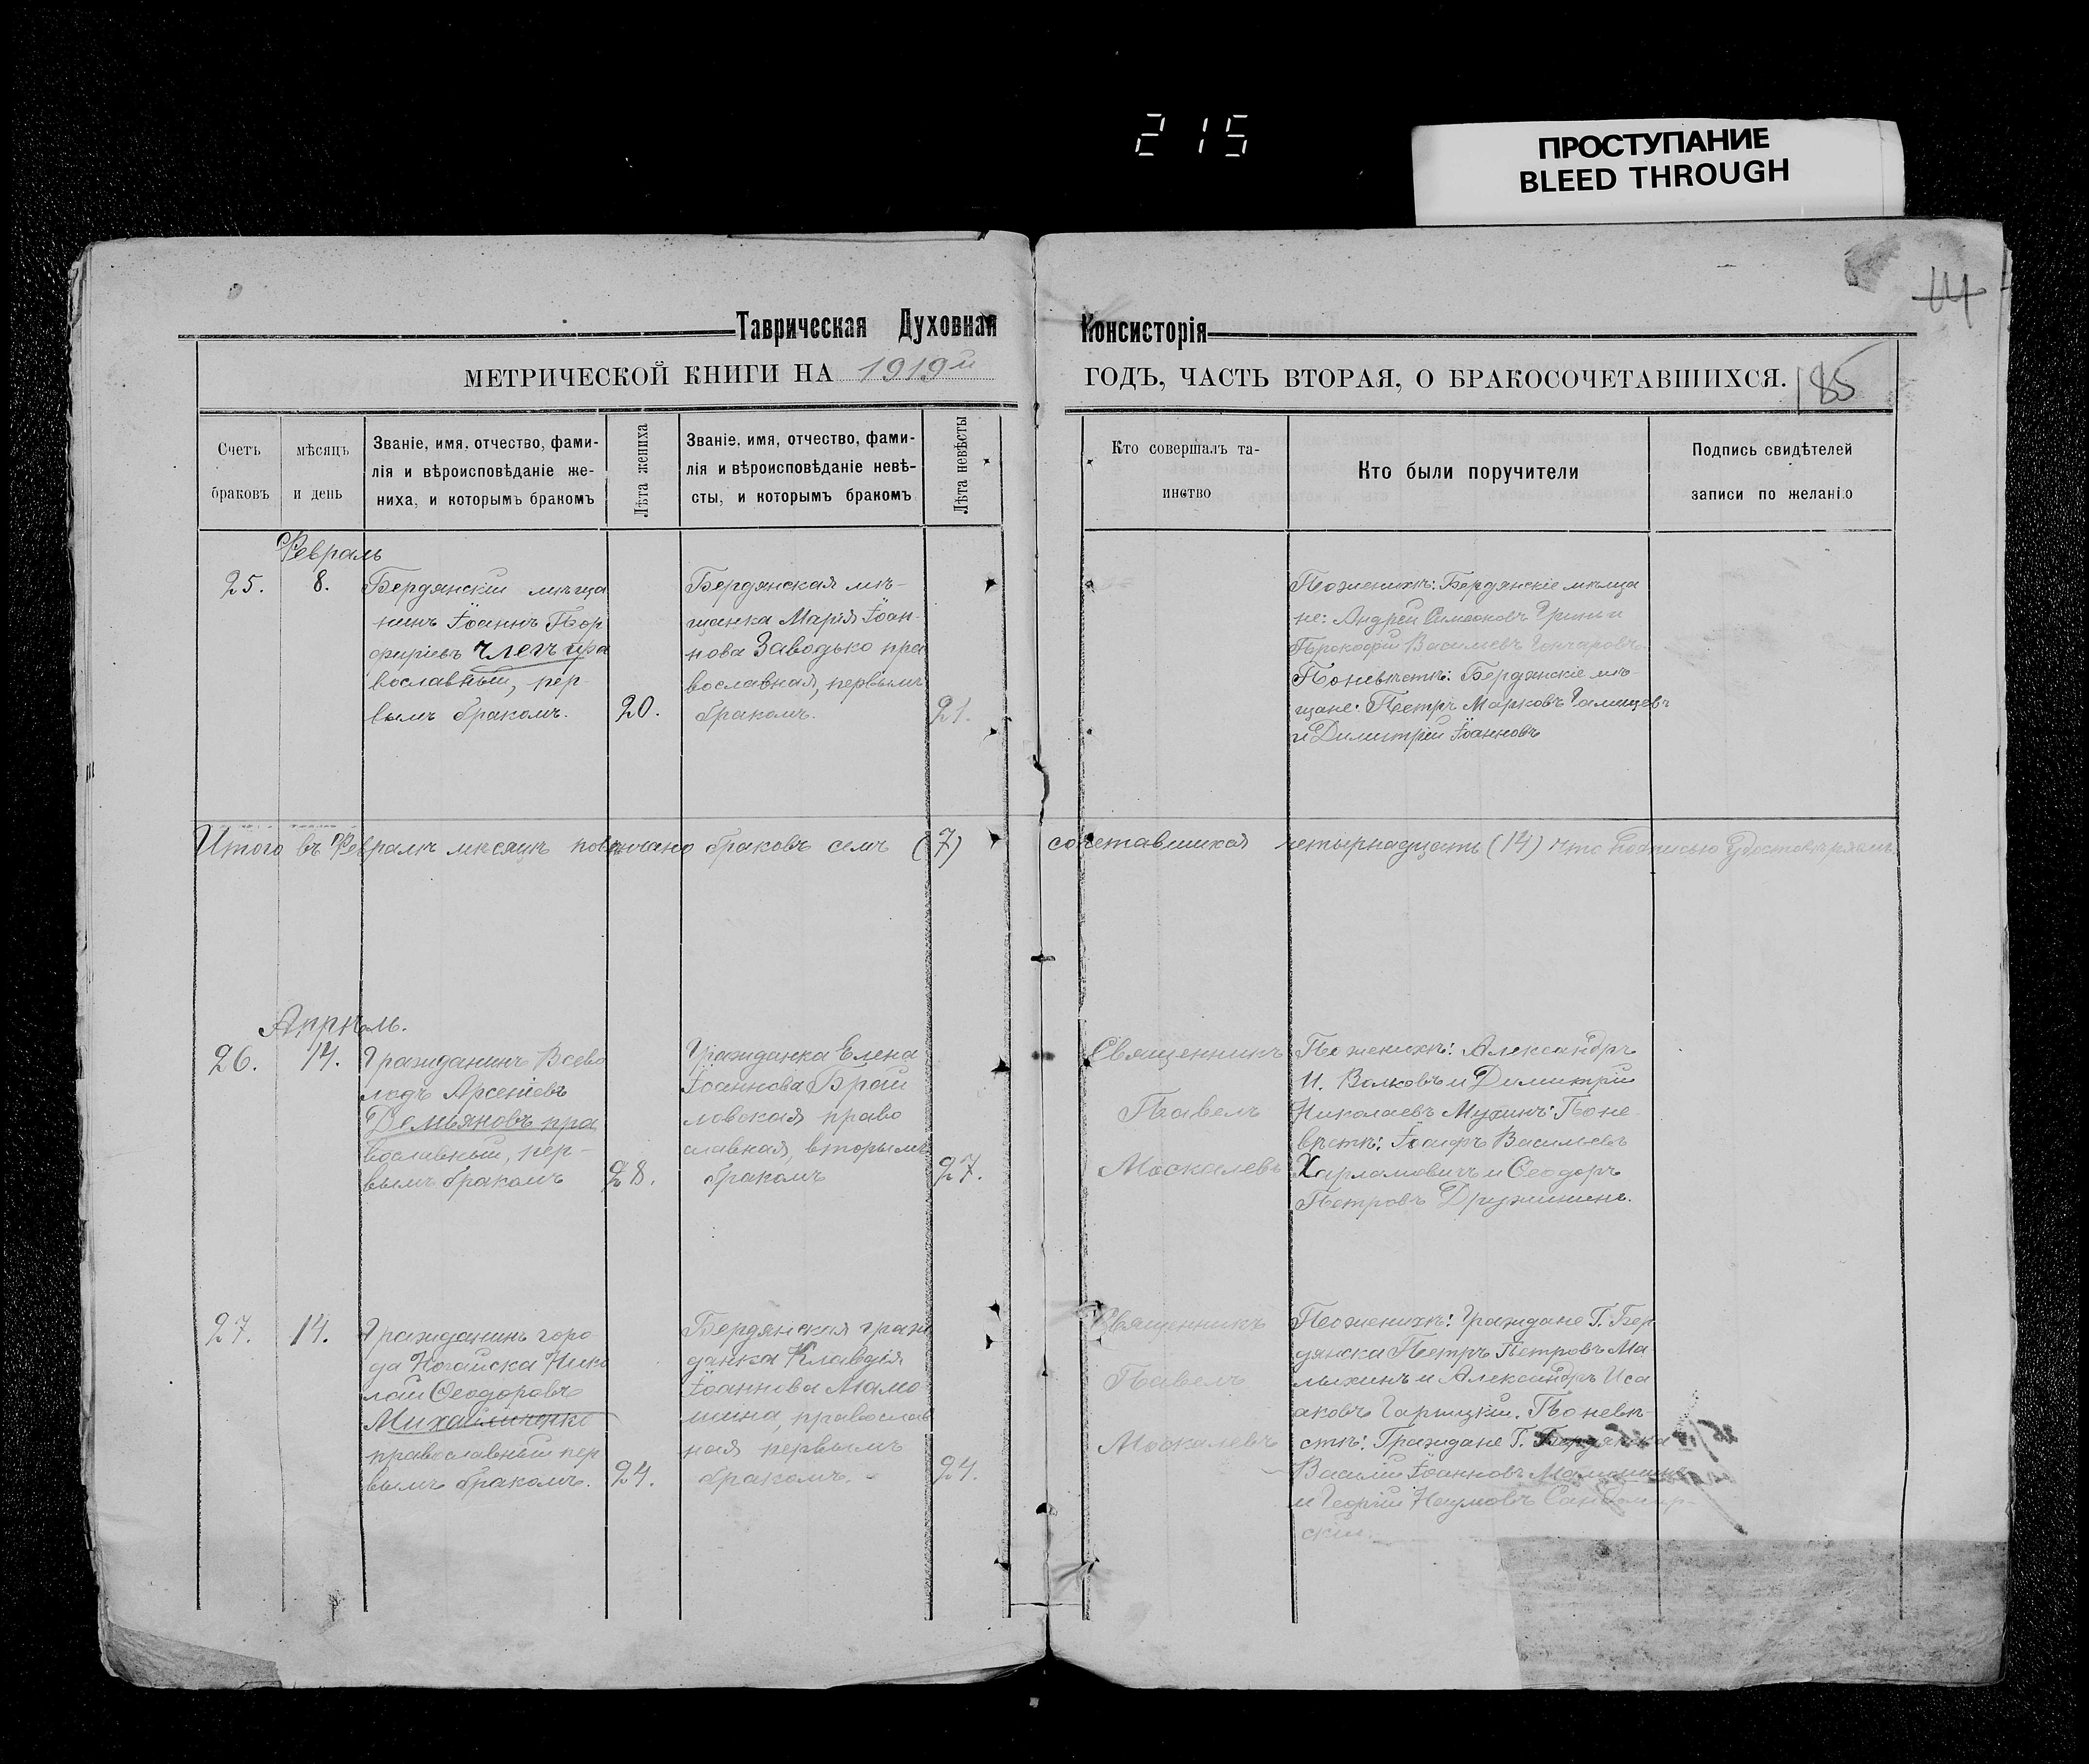 215
ПРОСТУПАНИЕ
BLEED THROUGH
14
Таврическая Духовная Консисторія
МЕТРИЧЕСКОЙ КНИГИ НА 1919й ГОДЪ, ЧАСТЬ ВТОРАЯ, О БРАКОСОЧЕТАВШИХСЯ.
185
Счетъ
браковъ
мѣсяцъ
и день
Званіе, имя, отчество, фами-
лія и вѣроисповѣданіе же-
ниха, и которымъ бракомъ
Лѣта жениха
Званіе, имя, отчество, фами-
лія и вѣроисповѣданіе невѣ-
сты, и которымъ бракомъ
Лѣта невѣсты
Кто совершалъ та-
инство
Кто были поручители
Подпись свидѣтелей
записи по желанію
Февраль
25.
8.
Бердянскій мѣща
нинъ Іоаннъ Пор
фиріевъ Члегъ пра
вославный, пер-
вымъ бракомъ.
20.
Бердянская мѣ-
щанка Марія Іоан-
нова Заводько пра
вославная, первымъ
бракомъ.
21.
По женихѣ: Бердянскіе мѣща
не: Андрей Симеоновъ и
Прокофій Васильевъ Гончаровъ
По невѣстѣ: Бердянскіе мѣ-
щане: Петръ Марковъ
и Димитрій Іоанновъ
Итого въ Февралѣ мѣсяцѣ повѣнчано браковъ семь (7) сочетавшихся четырнадцать (14) что подписью удостовѣряемъ.
Апрѣль.
26.
14.
Гражданинъ Всево
лодъ Арсеніевъ
Демьяновъ пра
вославный, пер-
вымъ бракомъ
28.
Гражданка Елена
Іоаннова Брай
ловская право
славная, вторымъ
бракомъ
27.
Священникъ
Павелъ
Москалевъ
По женихѣ: Александръ
И. Волковъ и Димитрій
Николаевъ Мухинъ: По не-
вѣстѣ: Іосифъ Васильевъ
Харламовичъ и Ѳеодоръ
Петровъ Дружининъ.
27.
14.
Гражданинъ горо
да Ногайска Нико
лай Ѳеодоровъ
Михайличенко
православный пер
вымъ бракомъ.
24.
Бердянская граж
данка Клавдія
Іоаннова Мамо
шина, православ
ная первымъ
бракомъ.
24.
Священникъ
Павелъ
Москалевъ
По женихѣ: Граждане Г. Бер
дянска Петръ Петровъ Ма
лыхинъ и Александръ Иса
аковъ Гарницкій. По невѣ-
стѣ: Граждане Г. Бердянска
Василій Іоанновъ Мамошинъ
и Георгій Наумовъ Сандомир-
скій.